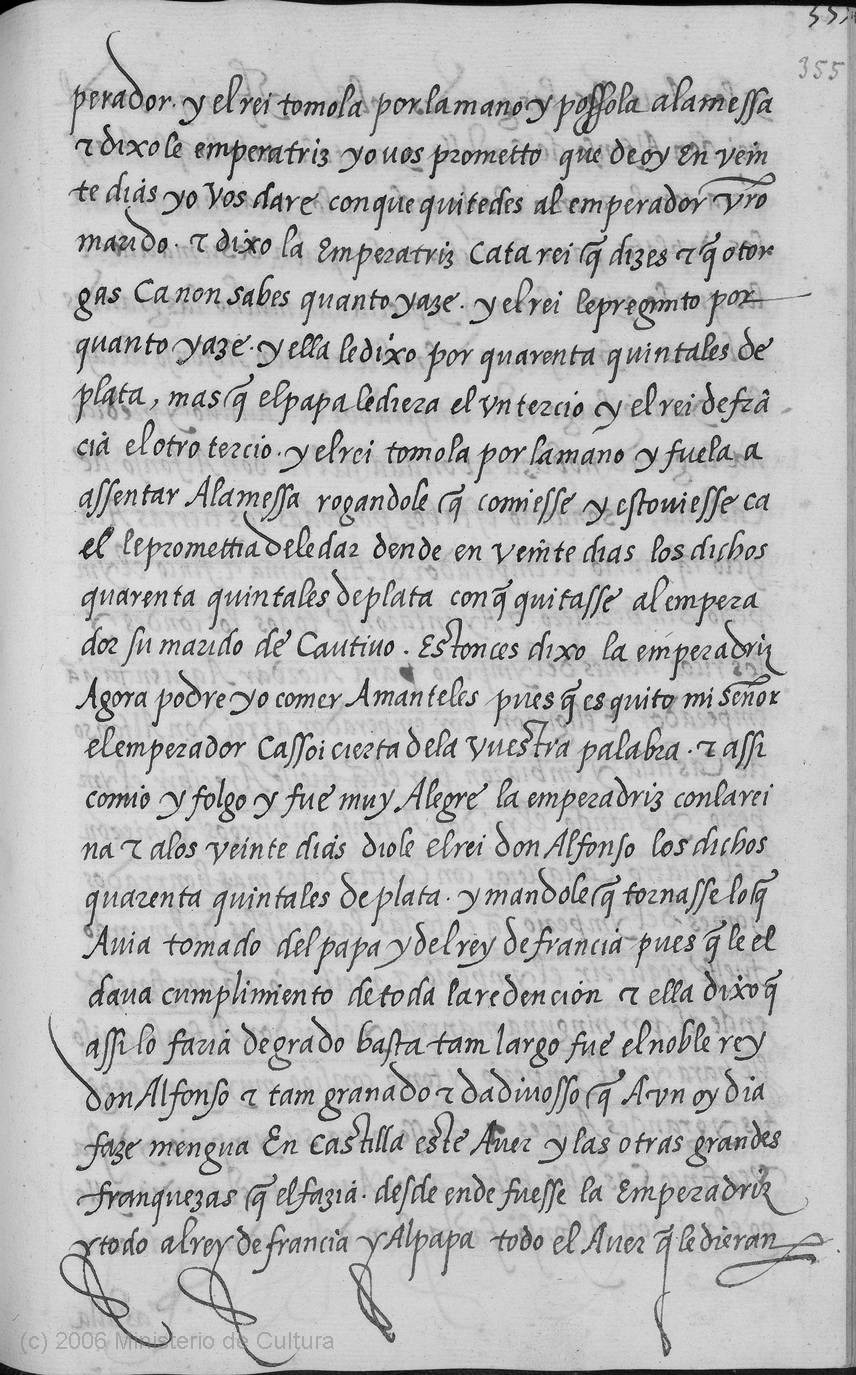 355
perador. y el rei tomola por la mano y possola a la messa
τ dixo le emperatriz yo vos prometto que de oy En vein
te dias yo Vos dare con que quitedes al emperador vro
marido. τ dixo la Emperatriz Cata rei q̃ dizes τ q̃ otor
gas Ca non sabes quanto yaze. y el rei le pregunto por
quanto yaze. y ella le dixo por quarenta quintales de
plata, mas q̃ el papa le diera el vn tercio y el rei de frã
cia el otro tercio. y el rei tomola por la mano y fuela a
assentar A la messa rogandole q̃ comiesse y estouiesse ca
el le promettia de le dar dende en veinte dias los dichos
quarenta quintales de plata con q̃ quitasse al empera
dor su marido de Cautiuo. Estonces dixo la emperadriz
Agora podre yo comer A manteles pues q̃ es quito mi señor
el emperador Ca ssoi cierta de la Vuestra palabra. τ assi
comio y folgo y fue muy Alegre la emperadriz con la rei
na τ a los veinte dias diole el rei don Alfonso los dichos
quarenta quintales de plata. y mandole q̃ tornasse lo q̃
Auia tomado del papa y del rey de francia pues q̃ le el
daua cumplimiento de toda la redencion τ ella dixo q̃
assi lo faria de grado basta tam largo fue el noble rey
don Alfonso τ tam granado τ dadiuosso q̃ Avn oy dia
faze mengua En Castilla este Auer y las otras grandes
franquezas q̃ el fazia. desde ende fuesse la Emperadriz
y todo al rey de francia y Al papa todo el Auer q̃ le dieran
(c) 2006 Ministerio de Cultura